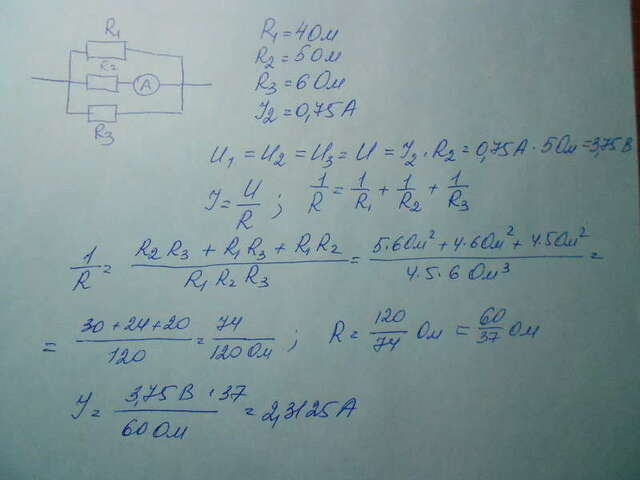 R₁
R₂
A
R₃
R₁ = 4 Ом
R₂ = 5 Ом
R₃ = 6 Ом
I₂ = 0,75 A
U₁ = U₂ = U₃ = U = I₂ · R₂ = 0,75 A · 5 Ом = 3,75 В
I = U/R ; 1/R = 1/R₁ + 1/R₂ + 1/R₃
1/R = (R₂R₃ + R₁R₃ + R₁R₂)/(R₁R₂R₃) = (5·6 Ом² + 4·6 Ом² + 4·5 Ом²)/(4·5·6 Ом³) =
= (30+24+20)/120 = 74/(120 Ом) ; R = 120/74 Ом = 60/37 Ом
I = (3,75 В · 37)/(60 Ом) = 2,3125 A